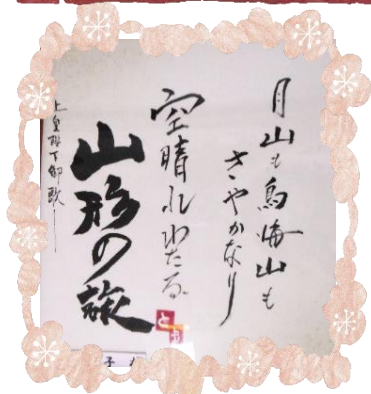 月山も鳥海山も
さやかなり
空晴れわたる
山形の旅
上皇陛下御歌